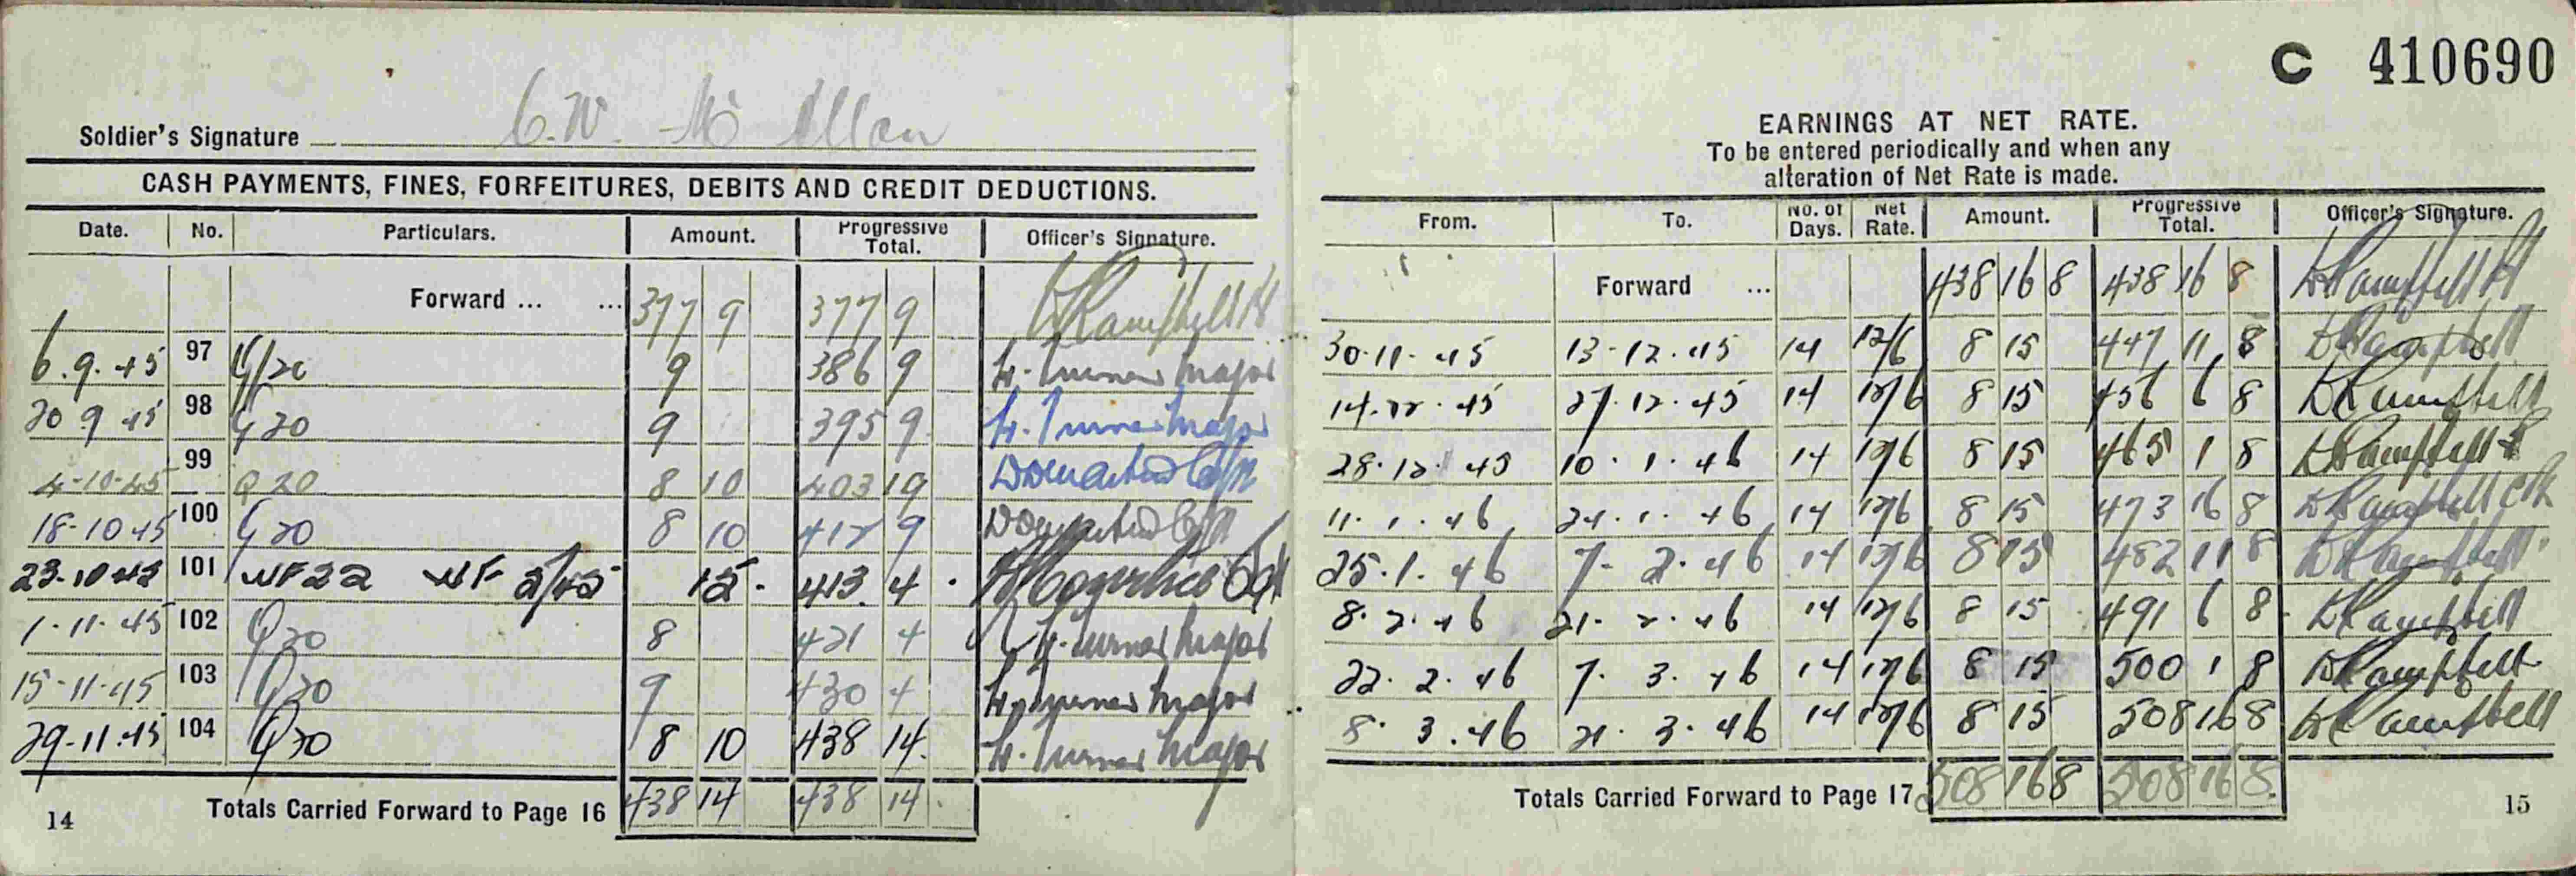 C 410690
Soldier's Signature C.W. Mc Allan
CASH PAYMENTS, FINES, FORFEITURES, DEBITS AND CREDIT DEDUCTIONS.
Date. No. Particulars. Amount. Progressive Total. Officer's Signature.
Forward ... ... 377 9 377 9 Campbell
6.9.45 97 20 9 386 9 H. Turner Major
20 9 45 98 20 9 395 9 H. Turner Major
4-10-45 99 Q 20 8 10 403 19
18-10 45 100 20 8 10 412 9
23.10 45 101 WF 22 WF 2/45 15. 413. 4.
1.11.45 102 Q 20 8 421 4 H. Turner Major
15-11-45 103 Q 20 9 430 4 H. Turner Major
29-11.45 104 Q 20 8 10 438 14. H. Turner Major
Totals Carried Forward to Page 16 438 14 438 14.
14
EARNINGS AT NET RATE.
To be entered periodically and when any
alteration of Net Rate is made.
From. To. No. of Days. Net Rate. Amount. Progressive Total. Officer's Signature.
Forward ... 438 16 8 438 16 8 Campbell
30.11.45 13-12.45 14 12/6 8 15 447 11 8 Campbell
14.12.45 27.12.45 14 12/6 8 15 456 6 8 Campbell
28.12.45 10.1.46 14 12/6 8 15 465 1 8 Campbell
11.1.46 24.1.46 14 12/6 8 15 473 16 8 Campbell
25.1.46 7.2.46 14 12/6 8 15 482 11 8 Campbell
8.2.46 21.2.46 14 12/6 8 15 491 6 8 Campbell
22.2.46 7.3.46 14 12/6 8 15 500 1 8 Campbell
8.3.46 21.3.46 14 12/6 8 15 508 16 8 Campbell
Totals Carried Forward to Page 17 508 16 8 508 16 8.
15